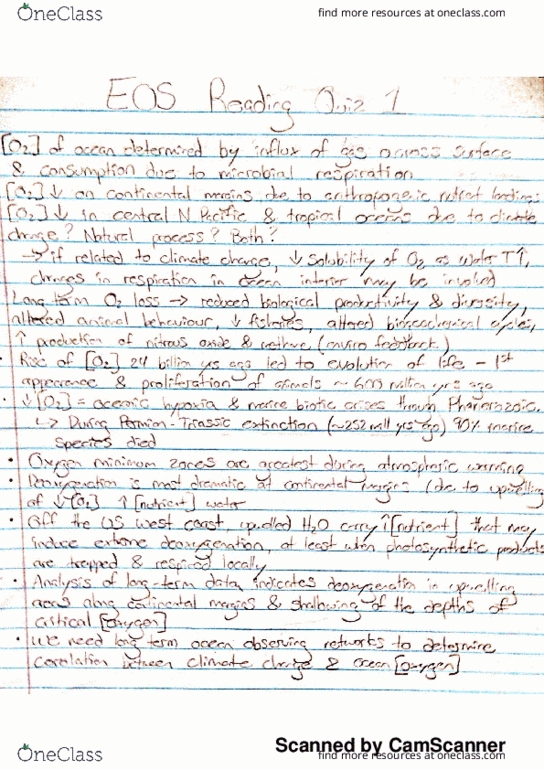 OneClass
find more resources at oneclass.com
EOS Reading Quiz 1
[O₂] of ocean determined by influx of gas across surface
& consumption due to microbial respiration
[O₂] ↓ on continental margins due to anthropogenic nutrient loading
[O₂] ↓ in central N Pacific & tropical oceans due to climate
change? Natural process? Both?
→ if related to climate change, ↓ solubility of O₂ as water T↑,
changes in respiration in ocean interior may be involved
Long term O₂ loss → reduced biological productivity & diversity,
altered animal behaviour, ↓ fisheries, altered biogeochemical cycles,
↑ production of nitrous oxide & methane (enviro feedback)
• Rise of [O₂] 2.4 billion yrs ago led to evolution of life - 1st
appearance & proliferation of animals ~ 600 million yrs ago
• ↓[O₂] = oceanic hypoxia & marine biotic crises through Phanerozoic
↳ During Permian-Triassic extinction (~252 mill yrs ago) 90% marine
species died
• Oxygen minimum zones are greatest during atmospheric warming
• Deoxygenation is most dramatic at continental margins (due to upwelling
of ↓[O₂] ↑[nutrient] water
• Off the US west coast, upwelled H₂O carry ↑[nutrient] that may
induce extreme deoxygenation, at least when photosynthetic products
are trapped & respired locally
• Analysis of long-term data indicates deoxygenation in upwelling
areas along continental margins & shallowing of the depths of
critical [oxygen]
• We need long term ocean observing networks to determine
correlation between climate change & ocean [oxygen]
Scanned by CamScanner
OneClass
find more resources at oneclass.com